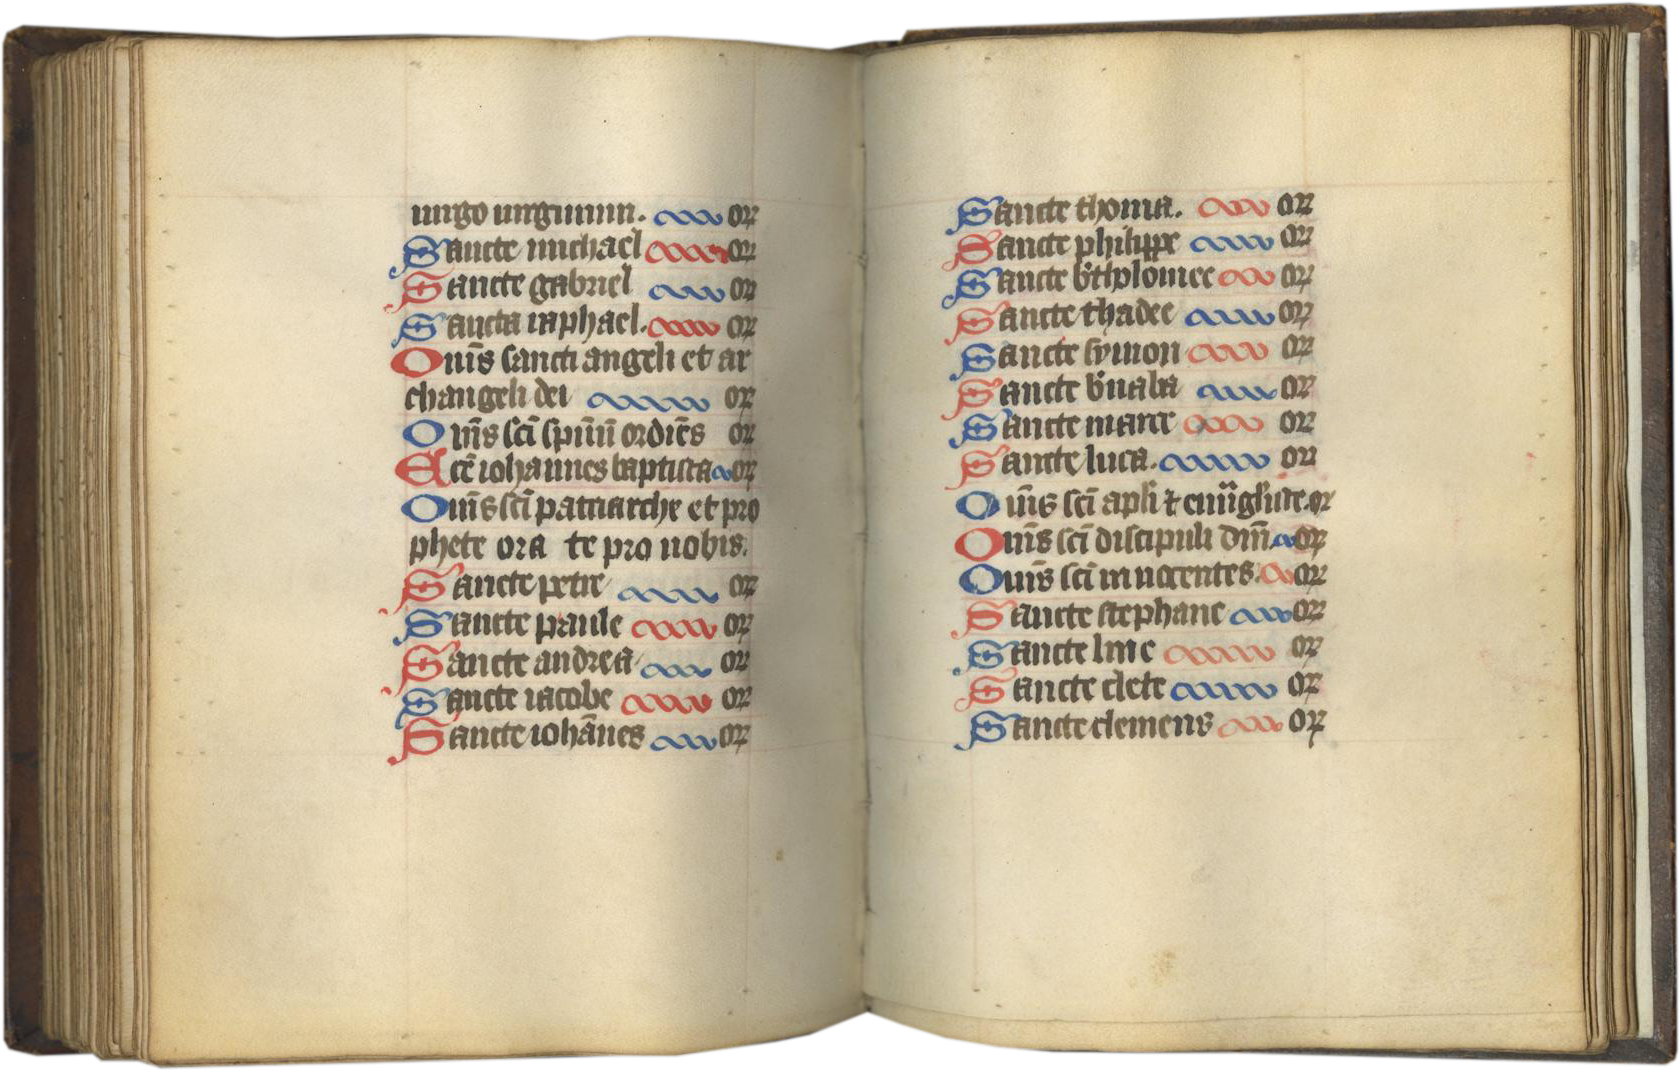 uirgo uirginum. or
Sancte michael or
Sancte gabriel or
Sancta raphael. or
Om̄s sancti angeli et ar
changeli dei or
Om̄s sc̄i spūū ordiēs or
Scē iohannes baptista or
Om̄s sc̄i patriarche et pro
phete ora te pro nobis.
Sancte petre or
Sancte paule or
Sancte andrea or
Sancte iacobe or
Sancte iohānes or
Sancte thoma. or
Sancte philippe or
Sancte b'tholomee or
Sancte thadee or
Sancte symon or
Sancte b'naba or
Sancte marce or
Sancte luca. or
Om̄s sc̄i apl'i et or
Om̄s sc̄i discipuli dnī or
Om̄s sc̄i innocentes. or
Sancte stephane or
Sancte line or
Sancte clete or
Sancte clemens or